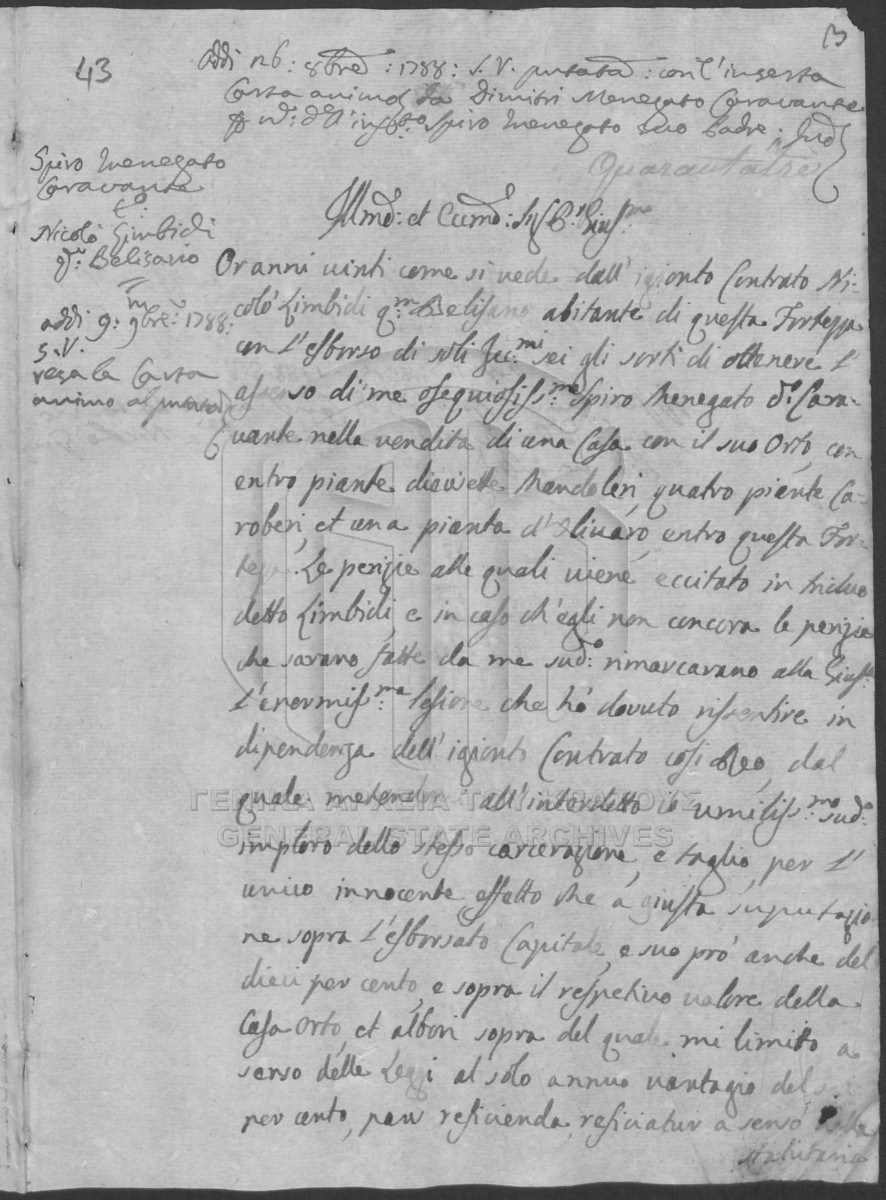 43
Addi 26: 8bre: 1788: S. V. : con l'inserta
Carta da Dimitri Menegato Caravante
Spiro Menegato suo Padre
Quarantatre
Spiro Menegato
Caravante
Co:
Nicolò Limbidi
qm: Belisario
addi 9: 9bre: 1788:
S. V.
Carta
Illmo: et Eccmo: Sigr
Or anni vinti come si vede dall' igionto Contrato Ni-
colò Limbidi qm Belisario abitante di questa Fortezza
con l'esborso di soli sei gli sortì di ottenere l'
assenso di me osequiosissmo Spiro Menegato do: Cara-
vante nella vendita di una Casa con il suo Orto, con
entro piante diecisette Mandoleri, quatro piante Ca-
roberi, et una pianta d'Olivaro, entro questa For-
teza. Le perizie alle quali viene eccitato in triduo
detto Limbidi, e in caso ch'egli non concora le perizie
che sarano fatte da me sudo: rimarcarano alla Giusta
l'enormissma lesione che hò dovuto rissentire in
dipendenza dell' igionto Contrato così Reo, dal
quale all'interdetto io umilissmo sudo:
imploro dello stesso carcerazione, e taglio, per l'
unico innocente effetto che à giusta suputazio-
ne sopra l'esborsato Capitale, e suo prò anche del
dieci per cento, e sopra il respetivo valore della
Casa Orto, et albori sopra del quale mi limito a
senso delle Leggi al solo annuo vantagio del sei
per cento, reficienda reficiatur a senso della
statutaria
ΓΕΝΙΚΑ ΑΡΧΕΙΑ ΤΟΥ ΚΡΑΤΟΥΣ
GENERAL STATE ARCHIVES